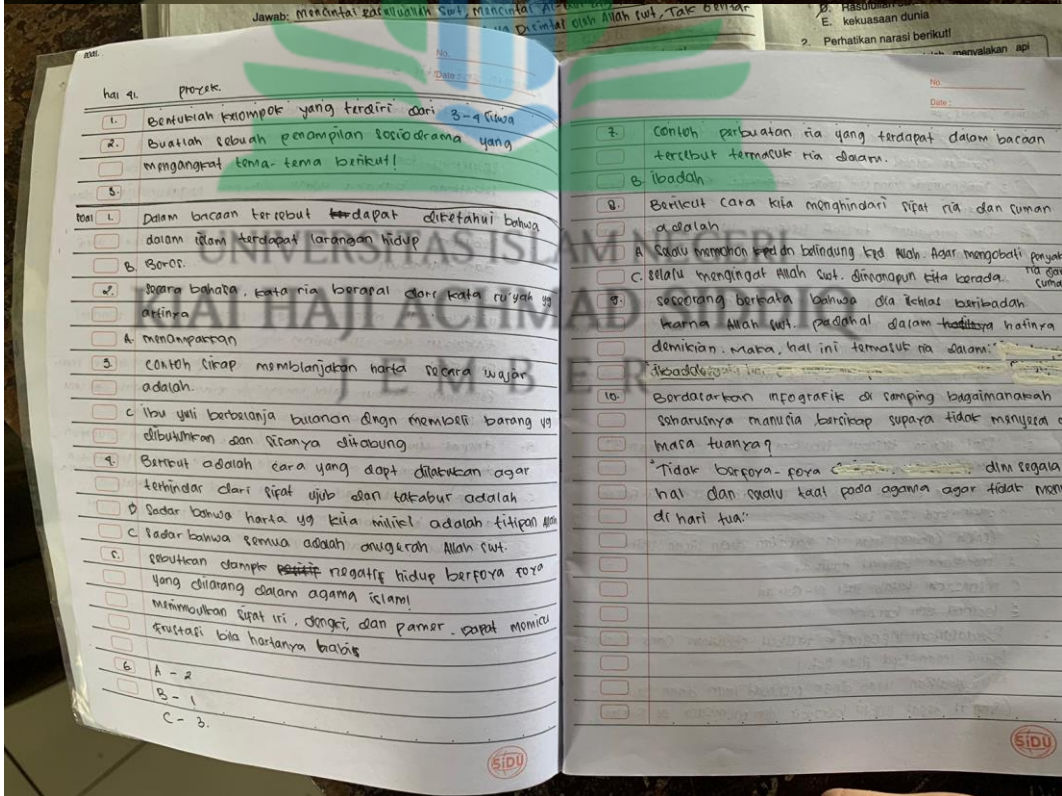 Jawab: Mencintai Rasulullah Swt, Mencintai
Dicintai oleh Allah swt, Tak
E. kekuasaan dunia
2. Perhatikan narasi berikut!
menyalakan api
UNIVERSITAS ISLAM NEGERI
KIAI HAJI ACHMAD SIDDIQ
JEMBER
No.
Date:
hal 41. proyek.
1. Bentuklah kelompok yang terdiri dari 3-4 siswa
2. Buatlah sebuah penampilan sosiodrama yang
mengangkat tema-tema berikut!
3.
soal 1. Dalam bacaan tersebut dapat diketahui bahwa
dalam islam terdapat larangan hidup
B. Boros.
2. secara bahasa, kata ria berasal dari kata ru'yah yg
artinya
A. menampakkan
3. contoh sikap memblanjakan harta secara wajar
adalah.
C ibu yuli berbelanja bulanan dngn membeli barang yg
dibutuhkan dan sisanya ditabung
4. Berikut adalah cara yang dapt dilakukan agar
terhindar dari sifat ujub dan takabur adalah
D Sadar bahwa harta yg kita miliki adalah titipan Allah
C Sadar bahwa semua adalah anugerah Allah swt.
5. sebutkan dampk negatif hidup berfoya foya
yang dilarang dalam agama islam!
menimbulkan sifat iri, dengki, dan pamer. dapat memicu
frustasi bila hartanya habis
6. A - 2
B - 1
C - 3.
SIDU
No.
Date:
7. Contoh perbuatan ria yang terdapat dalam bacaan
tersebut termasuk ria dalam.
B. ibadah
8. Berikut cara kita menghindari sifat ria dan suman
adalah
A Selalu memohon dn belindung kpd Allah. Agar mengobati penyak
ria dan
C. selalu mengingat Allah swt. dimanapun kita berada. suma
9. seseorang berkata bahwa dia ikhlas beribadah
karna Allah swt. padahal dalam hatinya
demikian. Maka, hal ini termasuk ria dalam:
10. Berdasarkan infografik di samping bagaimanakah
seharusnya manusia bersikap supaya tidak menyesal
masa tuanya?
"Tidak berfoya-foya dlm segala
hal dan selalu taat pada agama agar tidak
di hari tua."
SIDU